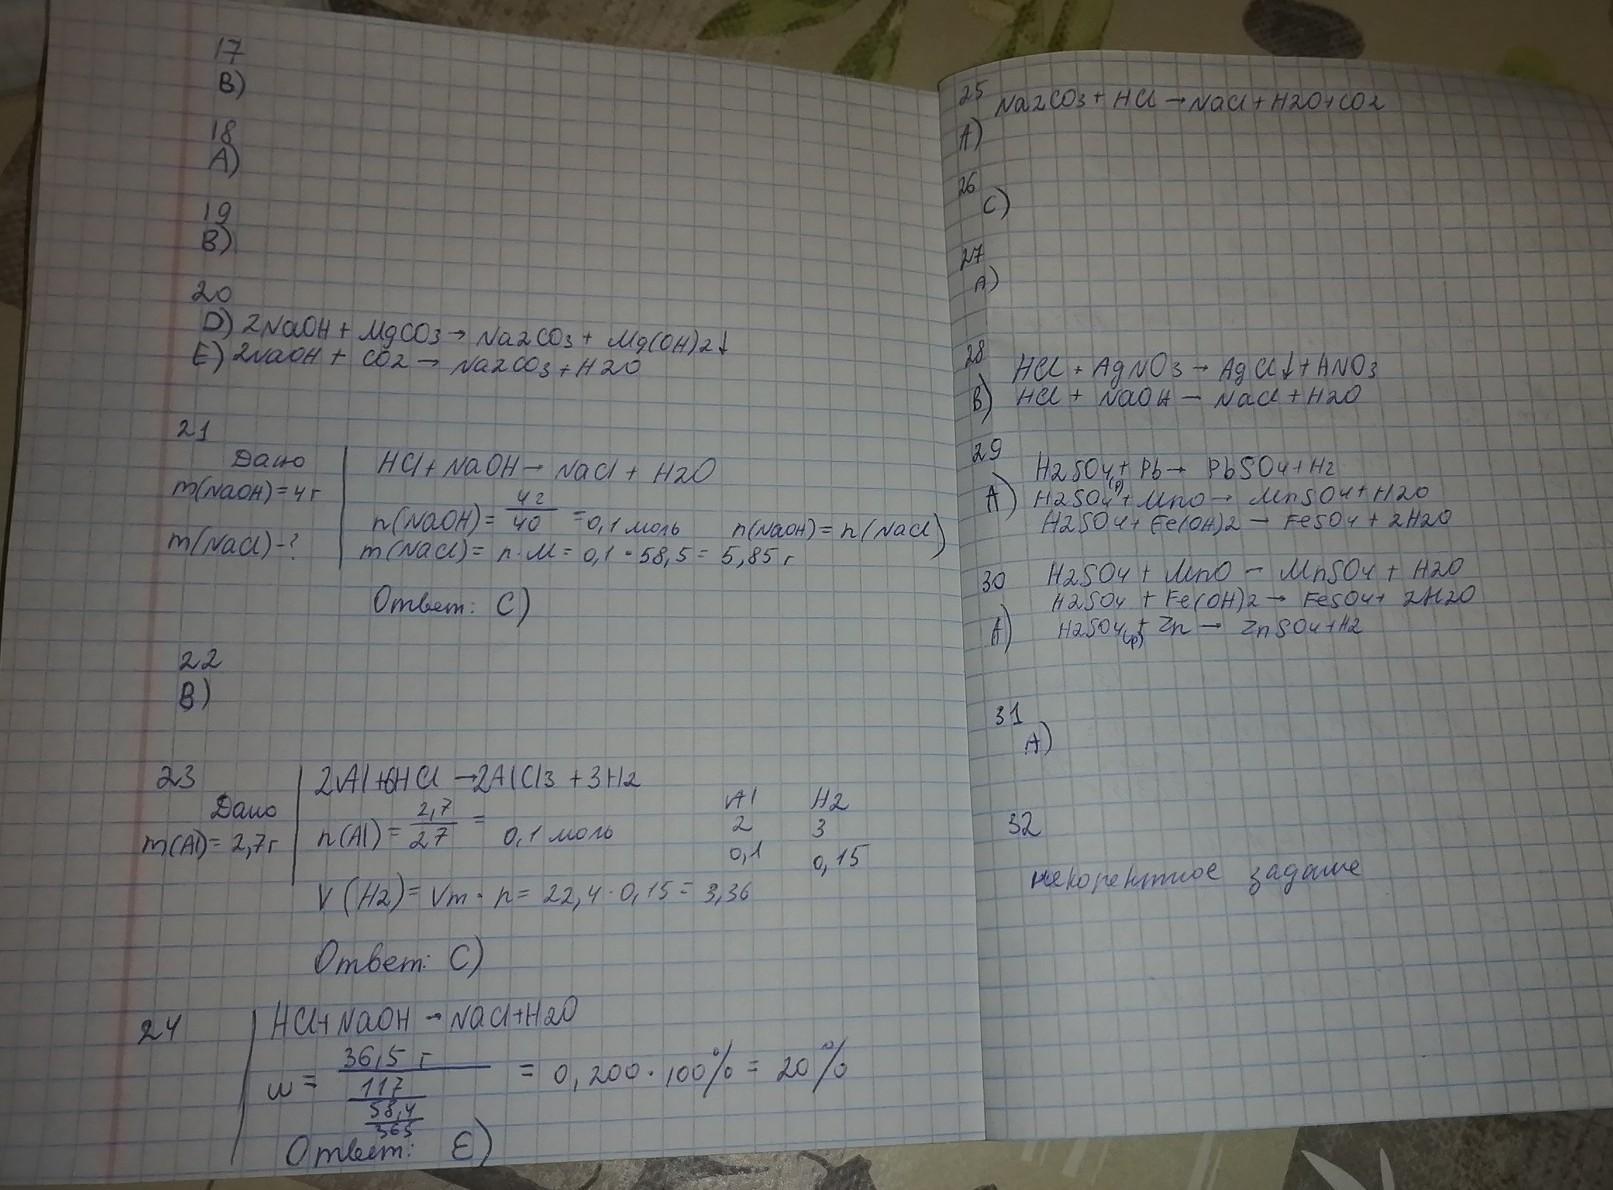 17
B)
18
A)
19
B)
20
D) 2NaOH + MgCO3 → Na2CO3 + Mg(OH)2↓
E) 2NaOH + CO2 → Na2CO3 + H2O
21
Дано
m(NaOH) = 4 г
m(NaCl) - ?
HCl + NaOH → NaCl + H2O
n(NaOH) = 4г/40 = 0,1 моль n(NaOH) = n(NaCl)
m(NaCl) = n · M = 0,1 · 58,5 = 5,85 г
Ответ: C)
22
B)
23
Дано
m(Al) = 2,7 г
2Al + 6HCl → 2AlCl3 + 3H2
n(Al) = 2,7/27 = 0,1 моль
Al H2
2 3
0,1 0,15
V(H2) = Vm · n = 22,4 · 0,15 = 3,36
Ответ: C)
24
HCl + NaOH → NaCl + H2O
w = 36,5 г/117/58,4/365 = 0,200 · 100% = 20%
Ответ: E)
25 Na2CO3 + HCl → NaCl + H2O + CO2
A)
26
C)
27
A)
28
HCl + AgNO3 → AgCl↓ + HNO3
B) HCl + NaOH — NaCl + H2O
29
H2SO4(р) + Pb → PbSO4 + H2
A) H2SO4 + MnO → MnSO4 + H2O
H2SO4 + Fe(OH)2 → FeSO4 + 2H2O
30 H2SO4 + MnO — MnSO4 + H2O
H2SO4 + Fe(OH)2 → FeSO4 + 2H2O
A) H2SO4(р) + Zn → ZnSO4 + H2
31
A)
32
некоректное задание